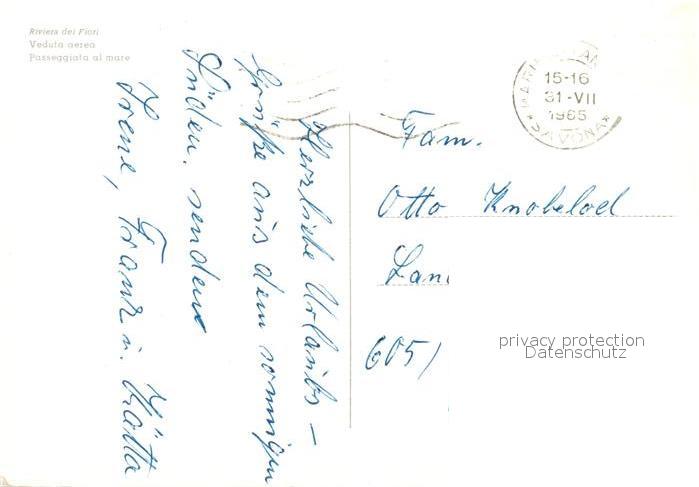 Riviera dei Fiori
Veduta aerea
Passeggiata al mare
15-16
31-VII
1965
SAVONA
Herzliebe Urlaubs-
Grüße aus dem sonnigen
Süden. senden
Irene, Franz u. Kätta
Fam.
Otto Knobeloch
Lan
605/
privacy protection
Datenschutz